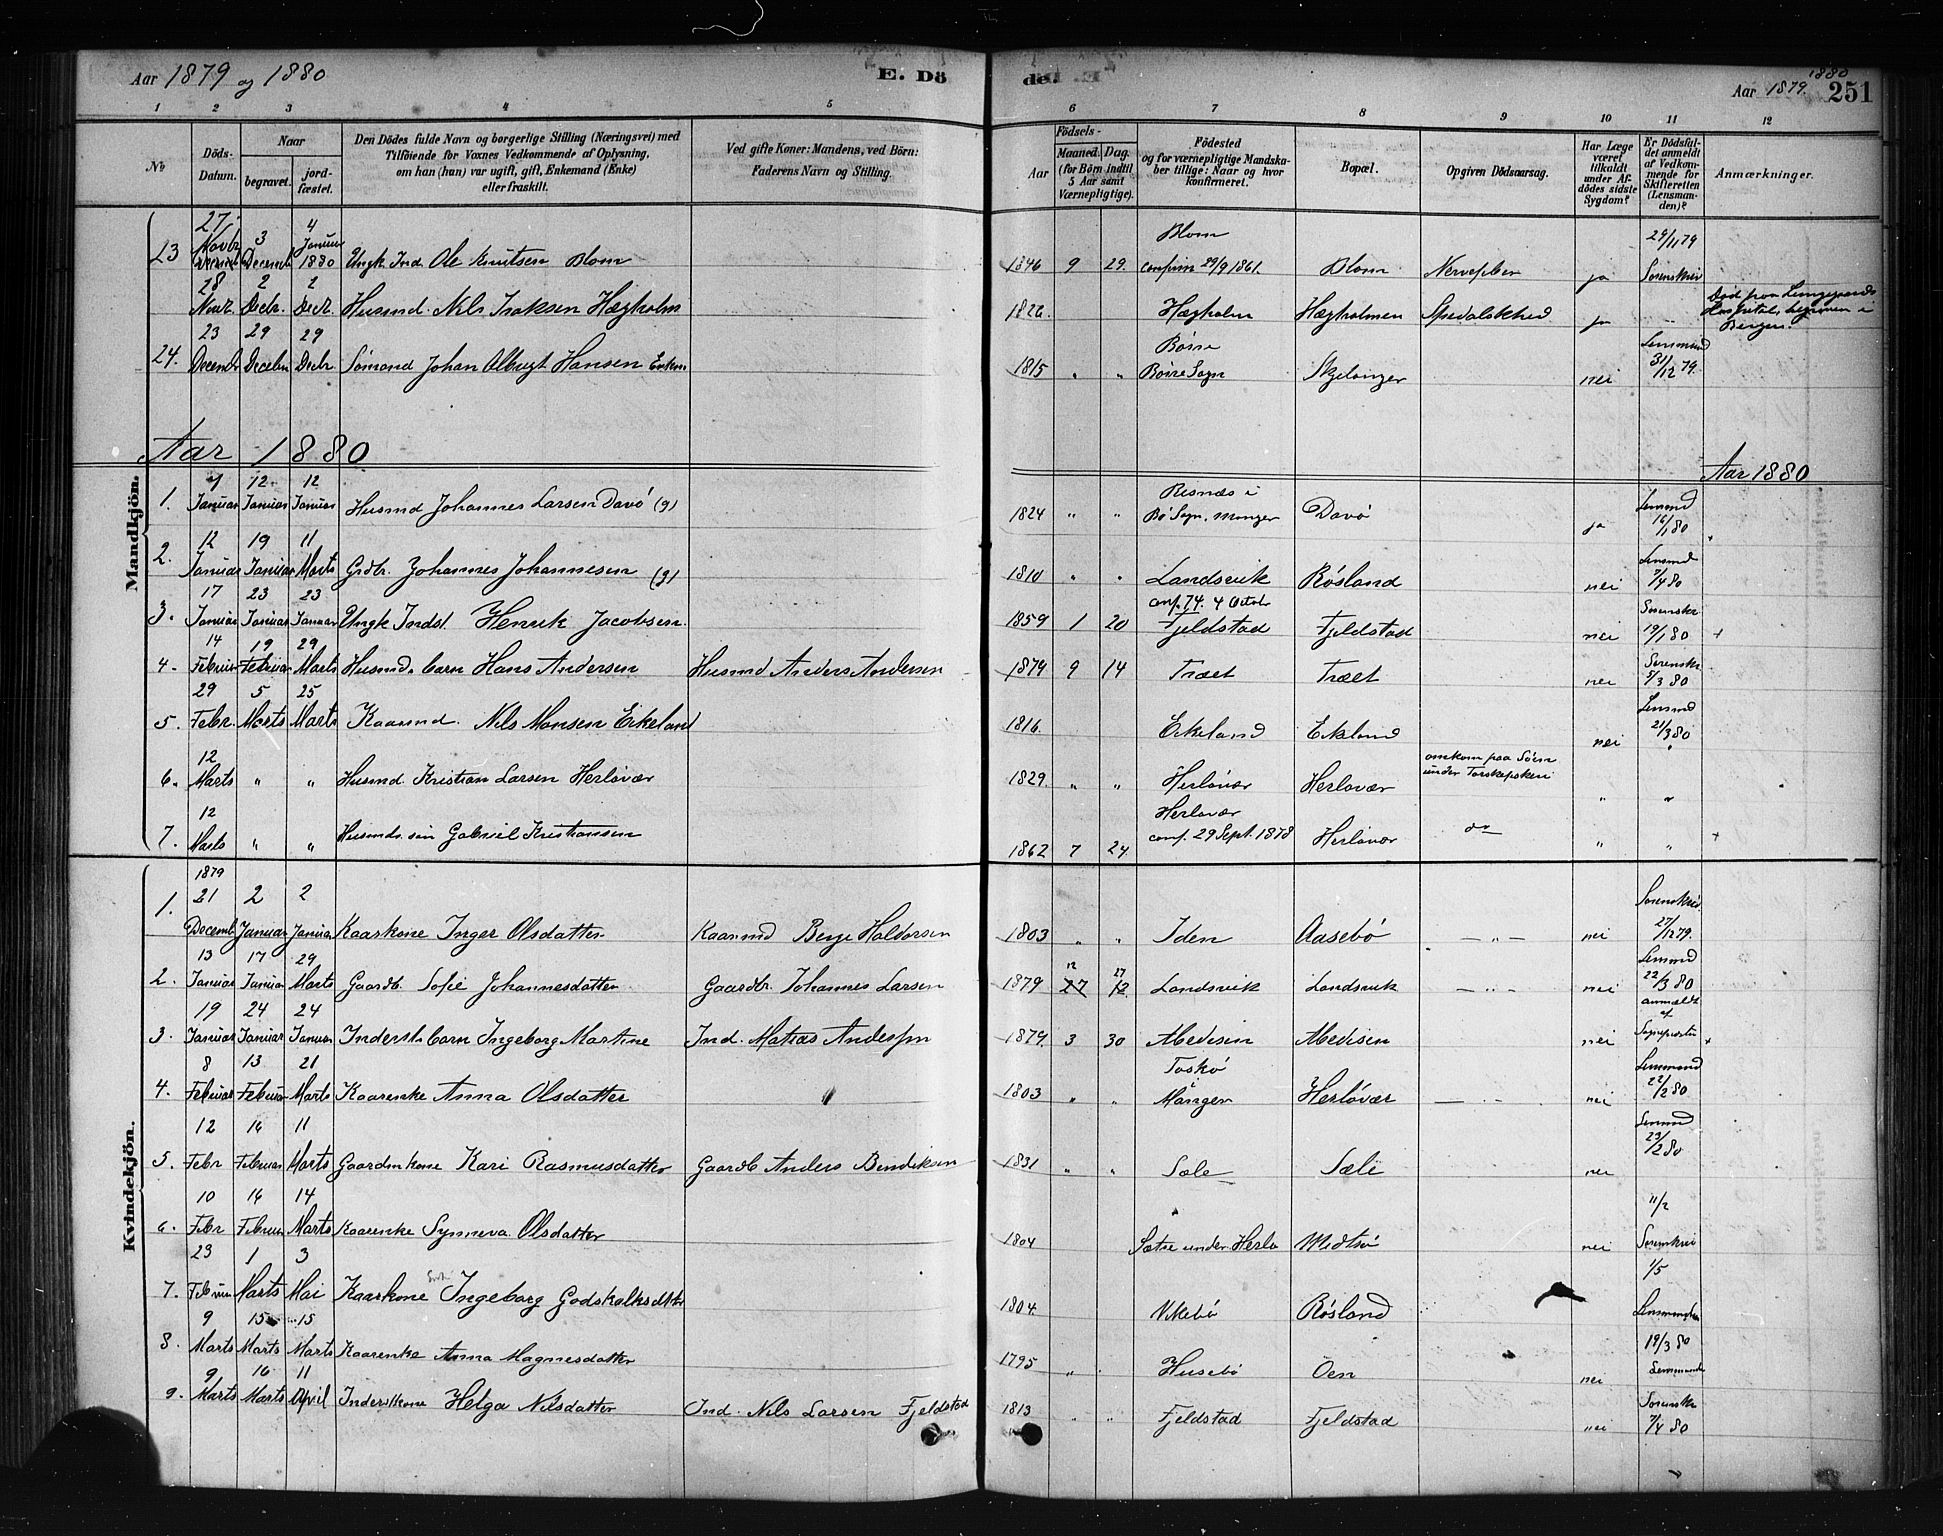 Aar 1879 og 1880 E. Dö
de. 1880
Aar 1879. 251
1 2 3 4 5 6 7 8 9 10 11 12
No.
Döds-Datum.
Naar
begravet.
jord-fæstet.
Den Dödes fulde Navn og borgerlige Stilling (Næringsvei) med
Tilföiende for Voxnes Vedkommende af Oplysning,
om han (hun) var ugift, gift, Enkemand (Enke)
eller fraskilt.
Ved gifte Koner: Mandens, ved Börn:
Faderens Navn og Stilling.
Födsels-
Aar
Maaned. Dag.
(for Börn indtil
5 Aar samt
Værnepligtige).
Födested
og for værnepligtige Mandska-
ber tillige: Naar og hvor
konfirmeret.
Bopæl.
Opgiven Dödsaarsag.
Har Læge
været
tilkaldt
under Af-
dödes sidste
Sygdom?
Er Dödsfal-
det anmeldt
af Vedkom-
mende for
Skifteretten
(Lensman-
den)?
Anmærkninger.
23 27 Novbr 3 Decemb 4 Januar 1880 Ungk. Ind. Ole Knutsen Blom 1846 9 29. Blom confirm 29/9 1861. Blom Nervefeber ja 29/11 79 Sorenskriv
28 Novr. 2 Decbr. 2 Decr. Husmd. Nils Isaksen Hægholm 1826. Hægholm Hægholmen Spedalskhed ja Død paa Lungegaards Hospital, begraven i Bergen.
24. 23 Decembr 29 Decebr 29 Decbr. Sømand Johan Albrigt Hansen Enkem 1815 " " Sogn Skjelanger nei Lensmand 31/12 79.
Aar 1880
Aar 1880
Mandkjön.
1. 7 Januar 12 Januar 12 Januar Husmd Johannes Larsen Davø (g) 1824 " " Risnæs i Bø Sogn, Manger Davø ja Lensmd 16/1 80
2. 12 Januar 19 Januar 11 Marts Grdbr. Johannes Johannesen (g) 1810 " " Landsvik Røsland nei Lensmd 7/4 80
3. 17 Januar 23 Januar 23 Januar Ungk Indst. Henrik Jacobsen. 1859 1 20 conf. 74. 4 Octobr Fjeldstad Fjeldstad nei Sorenskr 19/1 80 +
4. 14 Februar 19 Februar 29 Marts Husmds barn Hans Andersen Husmd Anders Andersen 1879 9 14 Træet Træet nei Sorenskr 5/3 80
5. 29 Febr. 5 Marts 25 Marts Kaarmd. Nils Monsen Eikeland 1816. Eikeland Eikland nei Lensmd 21/3 80
6. 12 Marts " " Husmd. Kristian Larsen Herløvær 1829. " " Herløvær Herløvær omkom paa Søen under Torskefiskeri " "
7. 12 Marts " " Husmds. søn Gabriel Kristiansen 1862 7 24. Herløvær conf. 29 Sept. 1878 Herløvær do " " +
Kvindekjön.
1. 1879 21 Decemb 2 Januar 2 Januar Kaarkone Inger Olsdatter Kaarmd Berge Haldorsen 1803 " " Iden Aasebø — " — nei Sorenskriv. 27/12 79.
2. 13 Januar 17 Januar 29 Marts Gaardb. Sofie Johannesdatter Gaardbr. Johannes Larsen 1879 12 27 27 12 Landsvik Landsvik — " — nei Lensmd 22/3 80
3. 19 Januar 24 Januar 24 Januar Inderst. barn Ingeborg Martine Ind. Matias Anderssen 1879. 3 30 Medisin Medisen nei anmældt af
4. 8 Februar 13 Februar 21 Marts Kaarenke Anna Olsdatter 1803 " " Toskø Manger Herløvær — " — nei Lensmand 22/2 80
5. 12 Febr 16 Februar 11 Marts Gaardm kone Kari Rasmusdatter Gaardb Anders Bendiksen 1831 " " Sæle Sæle nei Lensmd 23/2 80
6. 10 Febr 16 Februar 14 Marts Kaarenke Synneva Olsdatter 1804 Sætre under Herlø Midtsø nei 11/2 Sorenskri
7. 23 Februar 1 Marts 3 Mai Kaarkone Ingeborg Godskalksdtter 1804. Vikebø Røsland 1/5 Lensmanden
8. 9 Marts 15 Marts 15 Marts Kaarenke Anna Magnesdatter 1795 " Husebø Øen nei 19/3 80 Lensmande
9. 9 Marts 16 Marts 11 April Inderstkone Helga Nilsdatter Ind. Nils Larsen Fjeldstad 1813 " " Fjeldstad Fjeldstad nei Sorenskr 7/4 80